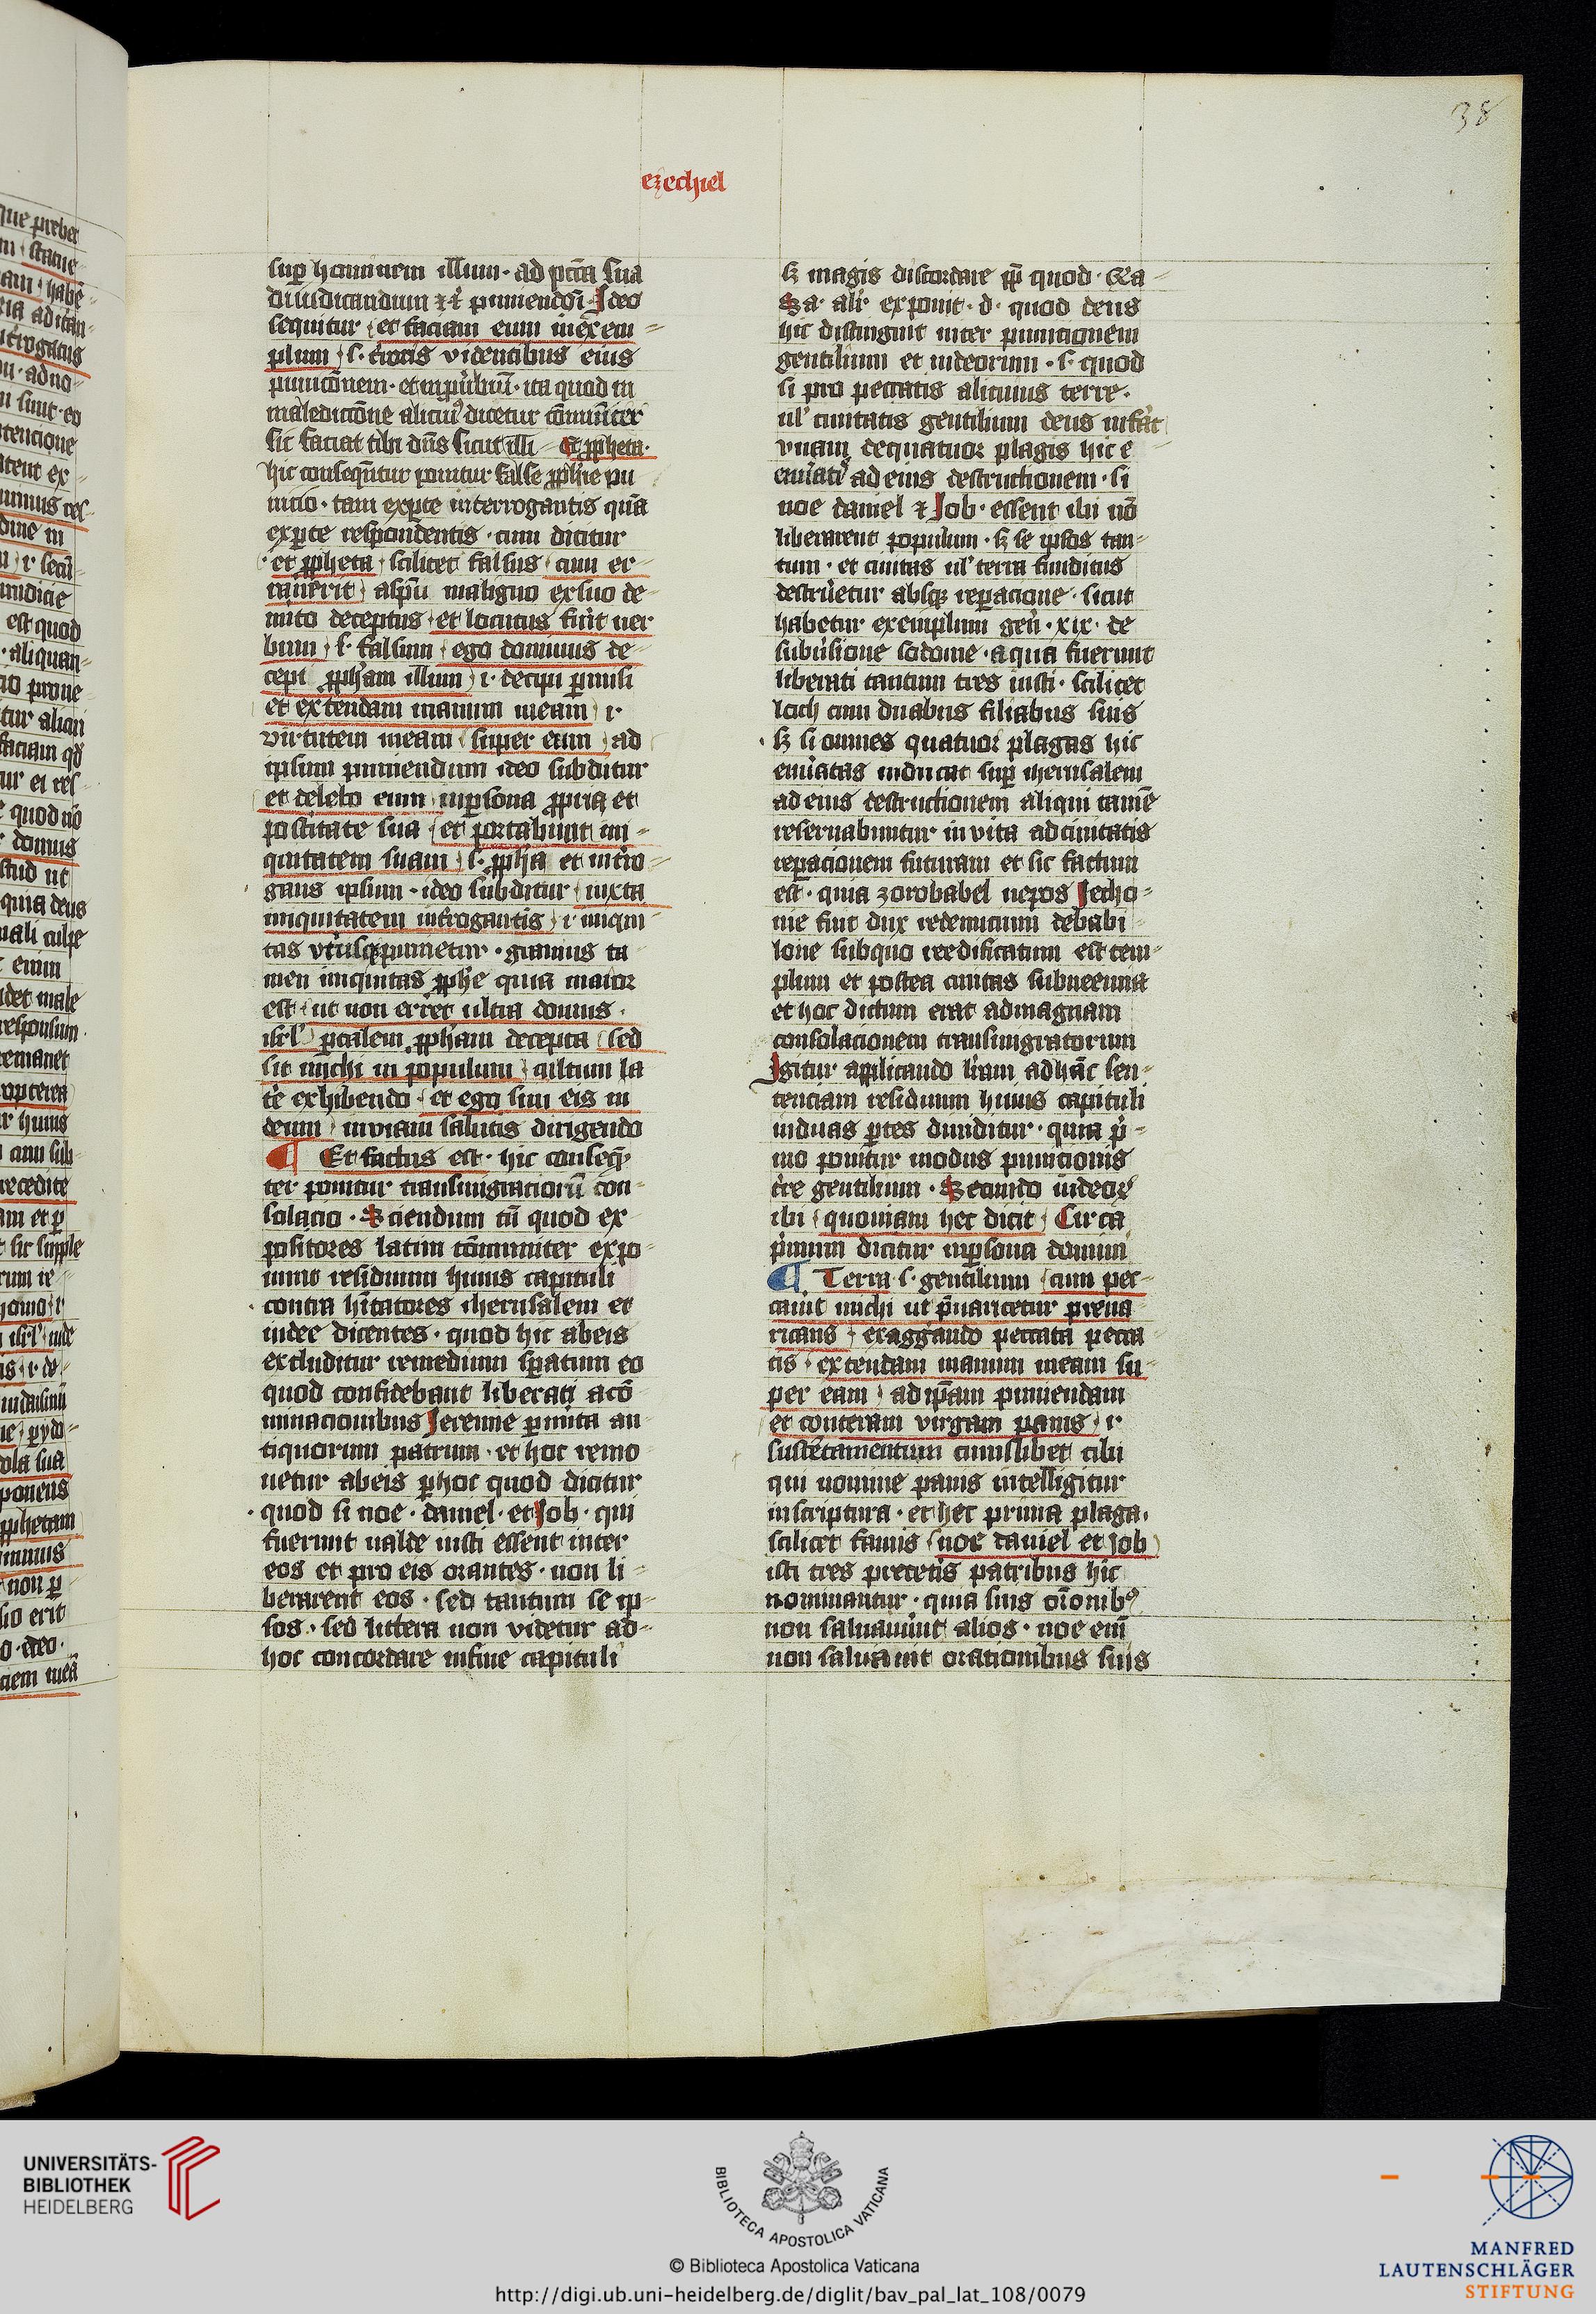 38
ezechiel
sup hominem illum · ad pctā sua
diiudicandum ⁊ ī puniendū · Ideo
sequitur et faciam eum in exem=
plum s. ceteris videntibus eius
punicōnem · et in puerbiū · ita quod in
maledictōne alicuiꝰ dicetur cōmūiter
sic faciat tibi dn̄s sicut illi Et ꝓpheta ·
hic consequēter ponitur false ꝓphie pu
nitio · tam ex parte interrogantis quā
ex parte respondentis · cum dicitur
et ꝓpheta scilicet falsus cum er=
rauerit a spū maligno ex suo de=
mito deceptus et locutus fuit uer
bum s. falsum ego dominus de=
cepi ꝓpham illum i. decipi ꝑmisi
et extendam manum meam i.
virtutem meam super eum ad
ipsum puniendum ideo subditur
et delebo eum in ꝑsona ꝓpria et
posteitate sua et portabunt ini=
quitatem suam s. ꝓpha et intro=
gans ipsum · ideo subditur iuxta
iniquitatem intrrogantis i. iniqui=
tas vtriusqꝫ punietur · grauius ta
men iniquitas ꝓphe quia maior
est ut non erret ultra domus ·
isrl' ꝑ talem ꝓpham decepta sed
sit michi in populum cultum la
trie exhibendo et ego sim eis in
deum in viam salutis dirigendo
¶ Et factus est · hic conseqꝫ
ter ponitur transmigratiorū con=
solacio · Sciendum tn̄ quod ex=
positores latini cōmmuniter expo=
nunt residuum huius capituli
contra hītatores iherusalem et
iudee dicentes · quod hic ab eis
excluditur remedium speratum eo
quod confidebant liberari a cō=
minacionibus Jeremie ꝑ merita an=
tiquorum patrum · et hoc remo=
uetur ab eis ꝑ hoc quod dicitur
quod si noe · daniel · et Job · qui
fuerunt ualde iusti essent inter
eos et pro eis orantes · non li=
berarent eos · sed tantum se ip=
sos · sed littera non videtur ad=
hoc concordare in fine capituli
sꝫ magis discordare ꝓpt quod · Ra=
Sa · alr̄ exponit · d. quod deus
hic distinguit inter punitionem
gentilium et iudeorum · s. quod
si pro peccatis alicuius terre ·
ul' ciuitatis gentilium deus inferat
vnam de quatuor plagis hic e
numeratꝭ ad eius destructionem · si
noe daniel ⁊ Job · essent ibi nō
liberarent populum · sꝫ se ipsos tan=
tum · et ciuitas ul' terra funditus
destrueretur absqꝫ reparacione · sicut
habetur exemplum gen̄ · xix · de
subuersione sodome · a qua fuerunt
liberati tantum tres iusti · scilicet
loth cum duabus filiabus suis
sꝫ si omnes quatuor plagas hic
enumeratas inducat sup iherusalem
ad eius destructionem aliqui tamē
reseruabuntur in vita ad ciuitatis
reparacionem futuram et sic factum
est · quia zorobabel nepos Jecho=
nie fuit dux redeuntium de babi
lone sub quo reedificatum est tem=
plum et postea ciuitas sub neemia
et hoc dictum erat ad magnam
consolacionem transmigratorum
Igitur applicando lr̄am ad hāc sen=
tenciam residuum huius capituli
in duas ꝑtes diuiditur · quia p̄=
mo ponitur modus punitionis
terre gentilium · Secundo iudeoꝝ
ibi quoniam hec dicit Circa
primum dicitur in ꝑsona domini
¶ Terra s. gentilium cum pec=
cauit michi ut p̄uaricetur preua=
ricans exaggerando peccata pecca=
tis · extendam manum meam su=
per eam ad ip̄am puniendam
et conteram virgam panis i.
sustentamentum cuiuslibet cibi
qui nomine panis intelligitur
in scriptura · et hec prima plaga ·
scilicet famis noe daniel et Job
isti tres pre ceteris patribus hic
nominantur · quia suis orōnibꝰ
non saluauerunt alios · noe enī
non saluauit orationibus suis
UNIVERSITÄTS-
BIBLIOTHEK
HEIDELBERG
BIBLIOTECA APOSTOLICA VATICANA
© Biblioteca Apostolica Vaticana
http://digi.ub.uni-heidelberg.de/diglit/bav_pal_lat_108/0079
MANFRED
LAUTENSCHLÄGER
STIFTUNG